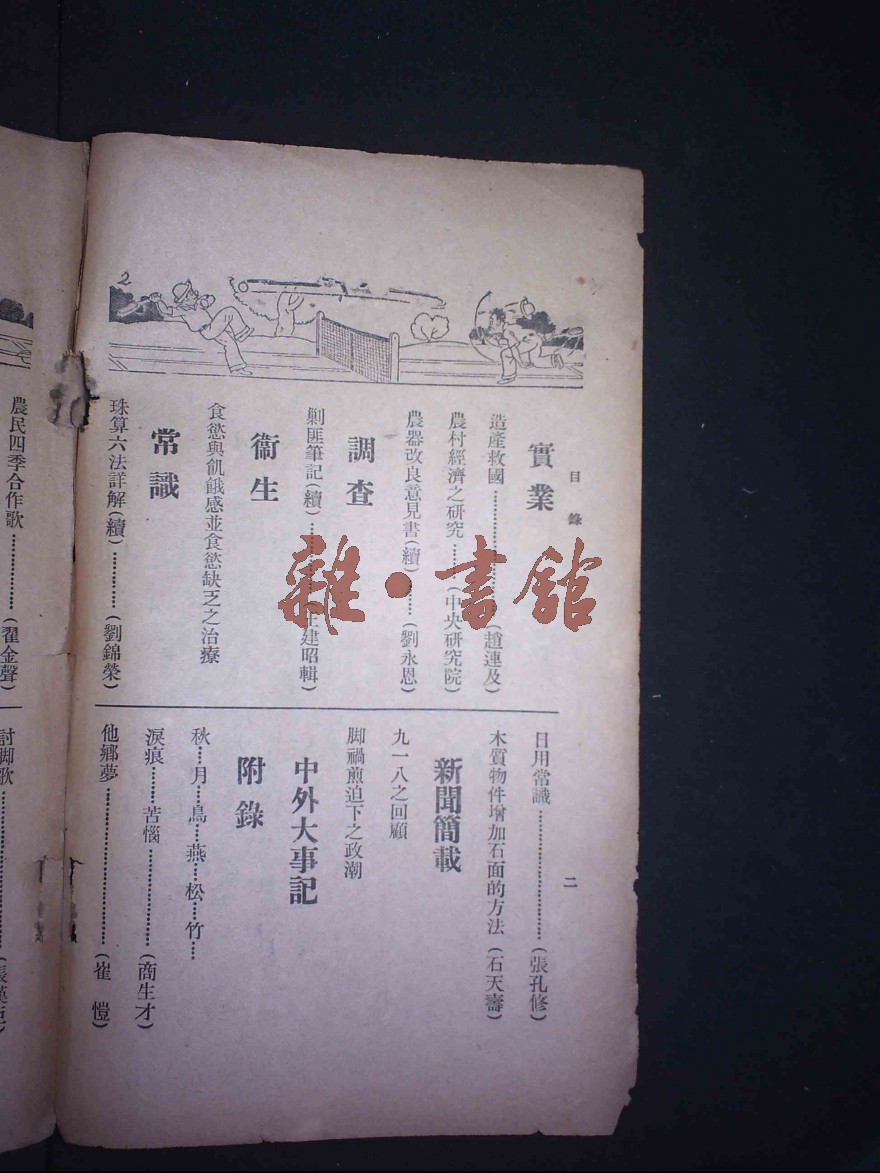 目錄
二
實業
造產救國……………………(趙連及)
農村經濟之研究………(中央研究院)
農器改良意見書(續)………(劉永恩)
調查
剿匪筆記(續)………建昭輯)
衞生
食慾與飢餓感並食慾缺乏之治療
常識
珠算六法詳解(續)…………(劉錦榮)
日用常識……………………(張孔修)
木質物件增加石面的方法(石天壽)
新聞簡載
九一八之回顧
脚禍煎迫下之政潮
中外大事記
附錄
秋…月…鳥…燕…松…竹…
淚痕………苦惱……………(商生才)
他鄉夢………………………(崔 愷)
農民四季合作歌……………(翟金聲)
討脚歌
2
雜·書館